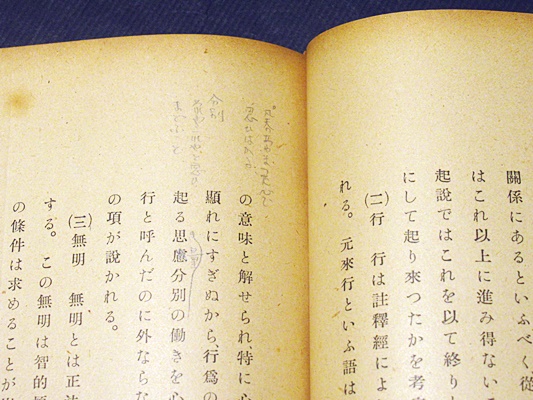 關係にあるといふべく、從
はこれ以上に進み得ない
起說ではこれを以て終りと
にして起り來つたかを考
(二)行　行は註釋經によ
れる。元來行といふ語は
の意味と解せられ、特に心
顯れにすぎぬから、行爲の
起る思慮分別の働きを心
行と呼んだのに外ならな
の項が說かれる。
(三)無明　無明とは正法
する。この無明は智的
の條件は求めることが
分別